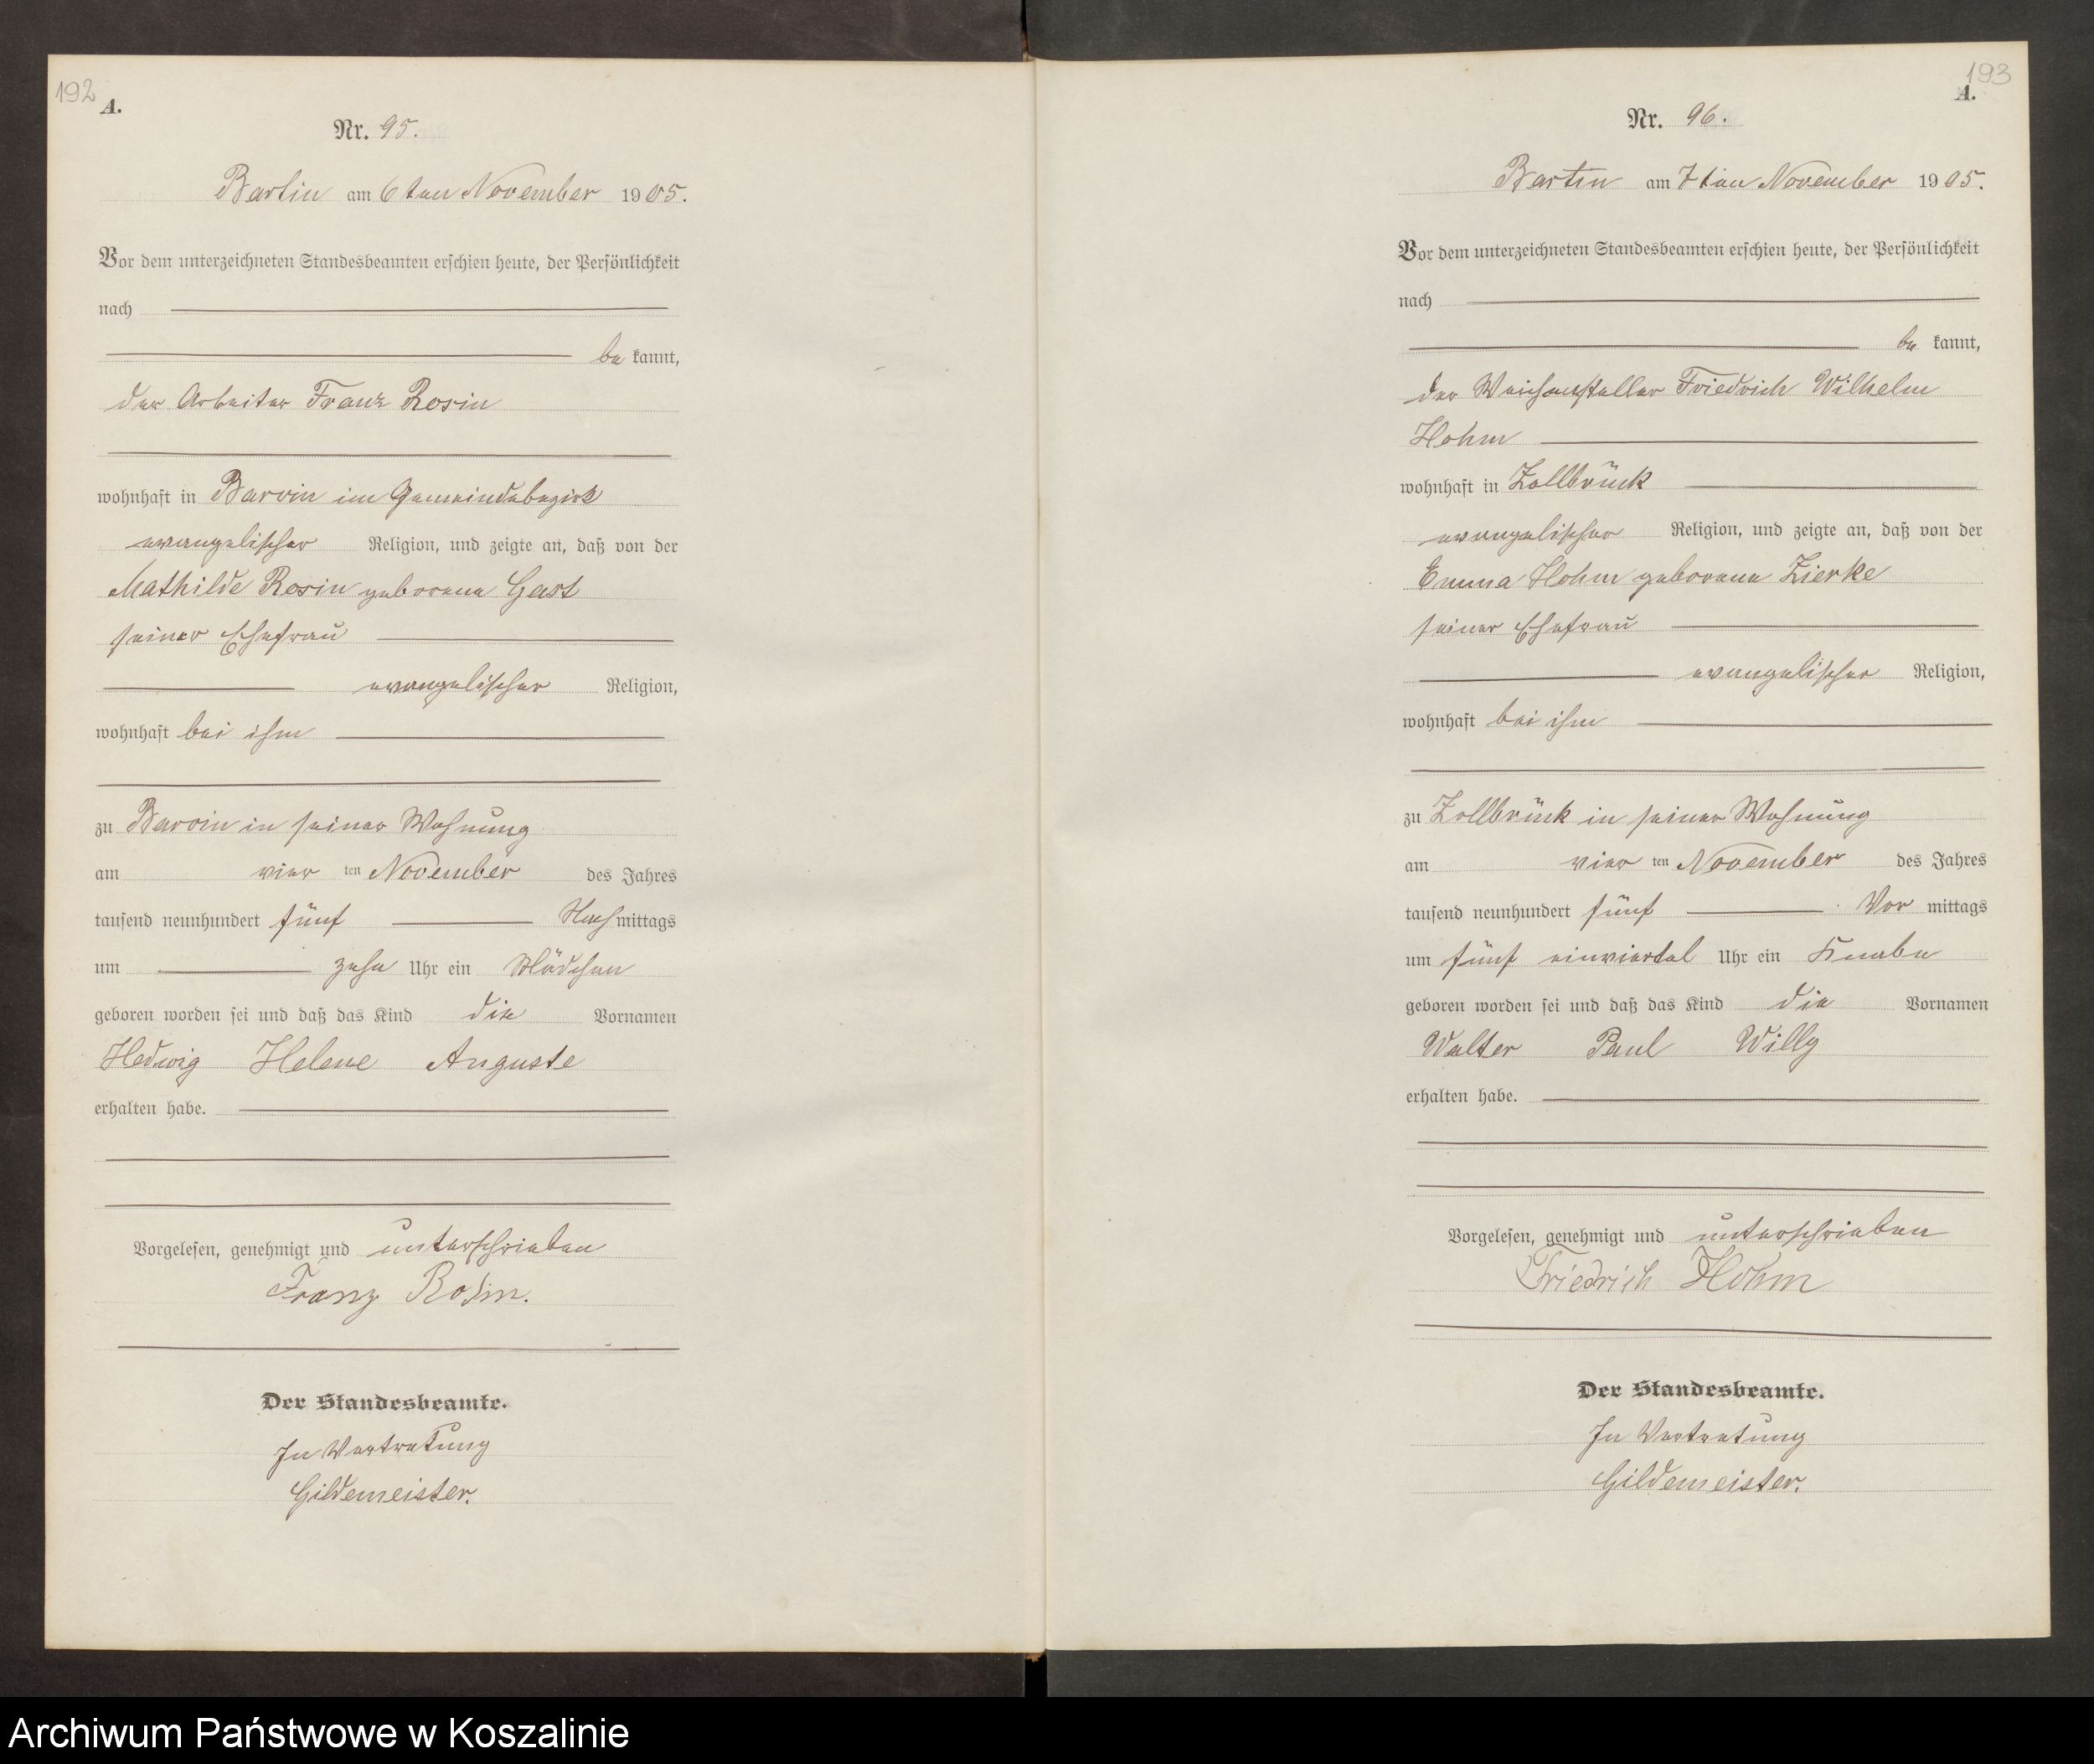 192
A.
Nr. 95.
Bartin am 6ten November 1905.
Vor dem unterzeichneten Standesbeamten erschien heute, der Persönlichkeit
nach
be kannt,
der Arbeiter Franz Rosin
wohnhaft in Barvin im Gemeindebezirk
evangelischer Religion, und zeigte an, daß von der
Mathilde Rosin geborene Gast
seiner Ehefrau
evangelischer Religion,
wohnhaft bei ihm
zu Barvin in seiner Wohnung
am vier ten November des Jahres
tausend neunhundert fünf Nach mittags
um zehn Uhr ein Mädchen
geboren worden sei und daß das Kind die Vornamen
Hedwig Helene Auguste
erhalten habe.
Vorgelesen, genehmigt und unterschrieben
Franz Rosin.
Der Standesbeamte.
In Vertretung
Gildemeister.
193
A.
Nr. 96.
Bartin am 7ten November 1905.
Vor dem unterzeichneten Standesbeamten erschien heute, der Persönlichkeit
nach
be kannt,
der Weichensteller Friedrich Wilhelm
Hohm
wohnhaft in Zollbrück
evangelischer Religion, und zeigte an, daß von der
Emma Hohm geborene Zierke
seiner Ehefrau
evangelischer Religion,
wohnhaft bei ihm
zu Zollbrück in seiner Wohnung
am vier ten November des Jahres
tausend neunhundert fünf Vor mittags
um fünf einviertel Uhr ein Knabe
geboren worden sei und daß das Kind die Vornamen
Walter Paul Willy
erhalten habe.
Vorgelesen, genehmigt und unterschrieben
Friedrich Hohm
Der Standesbeamte.
In Vertretung
Gildemeister.
Archiwum Państwowe w Koszalinie